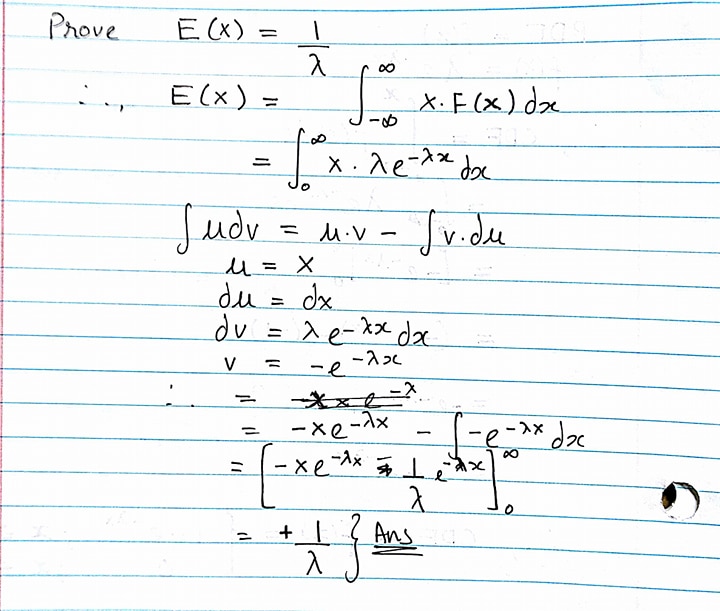 Prove E(x) = 1/λ
∴, E(x) = ∫_{-∞}^{∞} x · F(x) dx
= ∫_0^∞ x · λe^{-λx} dx
∫ u dv = u·v − ∫ v·du
u = x
du = dx
dv = λe^{-λx} dx
v = -e^{-λx}
∴ =
= -xe^{-λx} − ∫ -e^{-λx} dx
= [-xe^{-λx} − 1/λ e^{-λx}]_0^∞
= + 1/λ } Ans